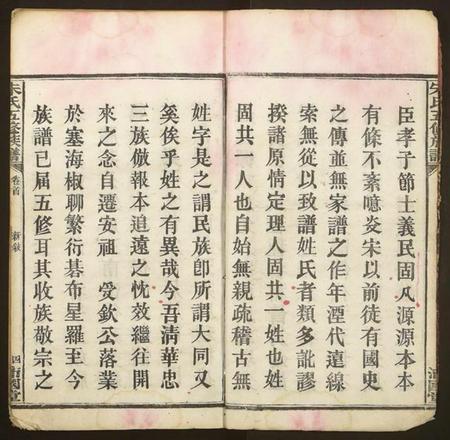 臣孝子節士義民固凡源源本本
有條不紊噫炎宋以前徒有國史
之傳並無家譜之作年湮代遠線
索無從以致譜姓氏者類多訛謬
揆諸原情定理人固共一姓也姓
固共一人也自始無親疏稽古無
姓字是之謂民族卽所謂大同又
奚俟乎姓之有異哉今吾清華忠
三族倣報本追遠之忱效繼往開
來之念自遷安祖 受欽公落業
於塞海椒聊繁衍碁布星羅王今
族譜已届五修耳其收族敬宗之
朱氏五修族譜
卷首
新敘
四